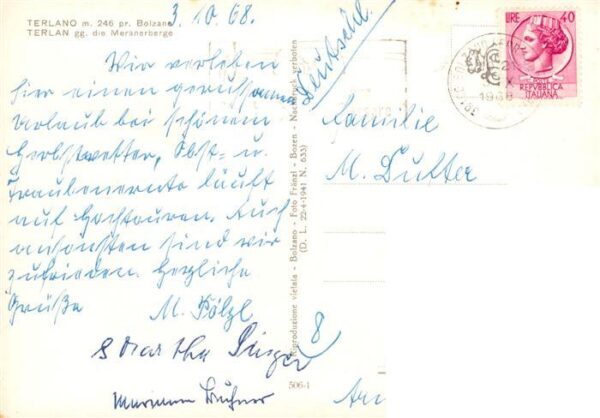 TERLANO m. 246 pr. Bolzano
TERLAN gg. die Meranerberge
3.10.68.
Wir verleben
hier einen geruhsamen
Urlaub bei schönem
Herbstwetter, Obst- u.
Traubenernte läuft
auf Hochtouren. Auch
ansonsten sind wir
zufrieden. Herzliche
Grüße M. Pölzl
Martha
Deutschl.
Riproduzione vietata - Bolzano - Foto Fränzl - Bozen - Nachdruck verboten
(D. L. 22-4-1941 N. 633)
8
506-1
LIRE 40
REPVBBLICA
ITALIANA
1968
Familie
M. Dutter